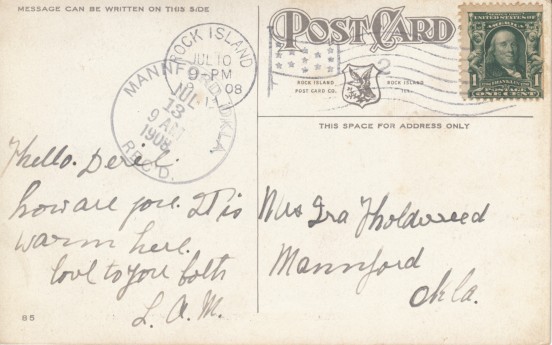 MESSAGE CAN BE WRITTEN ON THIS SIDE
POST CARD
ROCK ISLAND
POST CARD CO.
ROCK ISLAND
ILL.
UNITED STATES OF AMERICA
1 1
POSTAGE ONE CENT
ROCK ISLAND
JUL 10
9-PM
08
2
MANNFORD, OKLA.
JUL
13
9 AM
1908
REC'D.
THIS SPACE FOR ADDRESS ONLY
Hello.
how are you. It is
warm here.
love to you both
L. A. M.
Mrs Ira
Mannford
Okla.
85